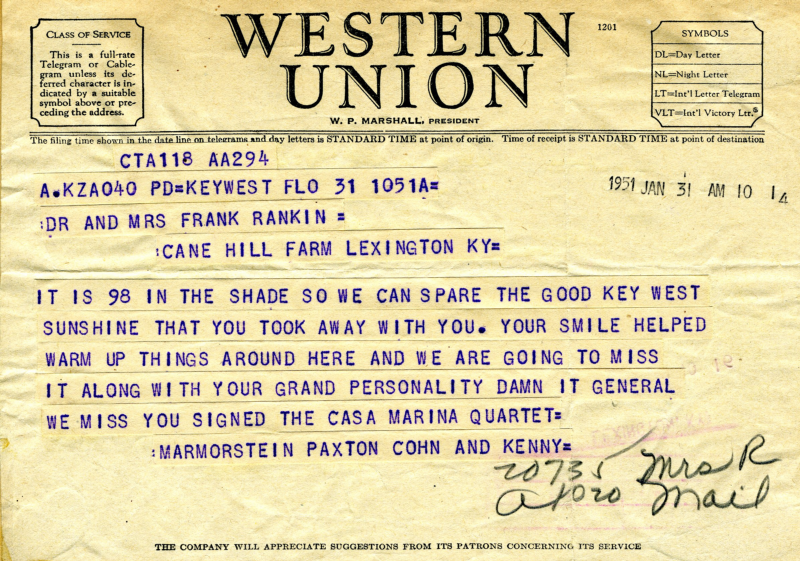 CLASS OF SERVICE
This is a full-rate
Telegram or Cable-
gram unless its de-
ferred character is in-
dicated by a suitable
symbol above or pre-
ceding the address.
WESTERN
UNION
1201
W. P. MARSHALL, PRESIDENT
SYMBOLS
DL=Day Letter
NL=Night Letter
LT=Int'l Letter Telegram
VLT=Int'l Victory Ltr.
The filing time shown in the date line on telegrams and day letters is STANDARD TIME at point of origin. Time of receipt is STANDARD TIME at point of destination
CTA118 AA294
A.KZA040 PD=KEYWEST FLO 31 1051A=
1951 JAN 31 AM 10 14
:DR AND MRS FRANK RANKIN=
:CANE HILL FARM LEXINGTON KY=
IT IS 98 IN THE SHADE SO WE CAN SPARE THE GOOD KEY WEST
SUNSHINE THAT YOU TOOK AWAY WITH YOU. YOUR SMILE HELPED
WARM UP THINGS AROUND HERE AND WE ARE GOING TO MISS
IT ALONG WITH YOUR GRAND PERSONALITY DAMN IT GENERAL
WE MISS YOU SIGNED THE CASA MARINA QUARTET=
:MARMORSTEIN PAXTON COHN AND KENNY=
20735 Mrs R
a1020 Mail
THE COMPANY WILL APPRECIATE SUGGESTIONS FROM ITS PATRONS CONCERNING ITS SERVICE